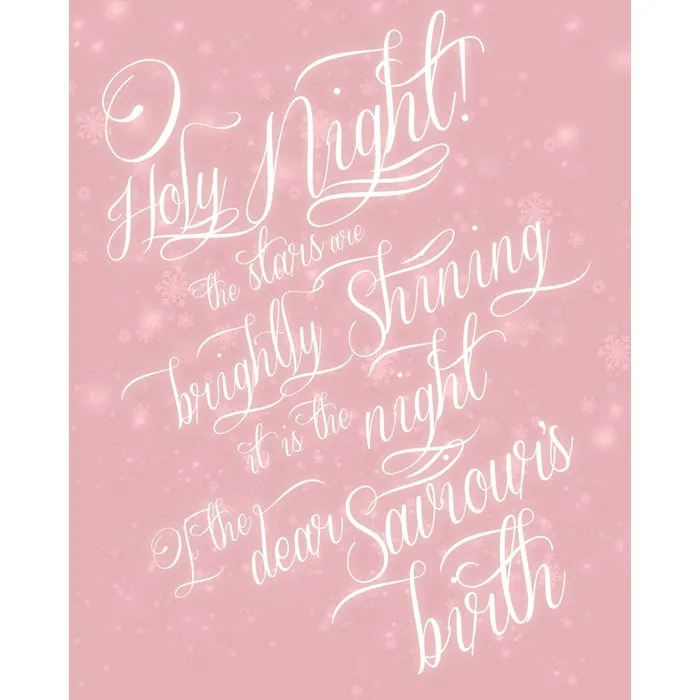 O
Holy Night!
the stars are
brightly Shining
it is the night
Of the dear Saviour's
birth